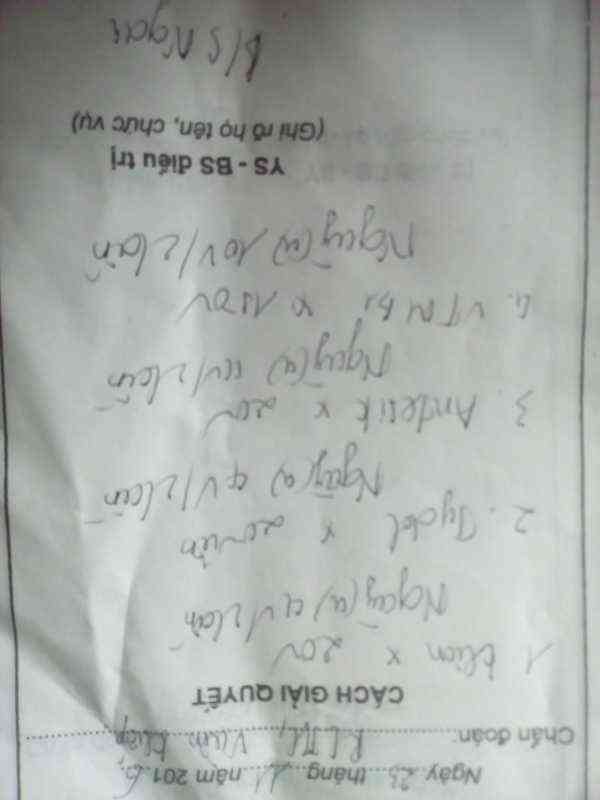 Ngày 23 tháng 11 năm 2016
Chẩn đoán: RLTK, Viêm khớp
CÁCH GIẢI QUYẾT
1 x 20v
Ngày (u) 4v/2 lần
2. Tydol x 20 viên
Ngày (u) 4v/2 lần
3. x 20v
Ngày (u) 4v/2 lần
4. VTM B1 x 150v
Ngày (u) 10v/2 lần
YS - BS điều trị
(Ghi rõ họ tên, chức vụ)
B/S